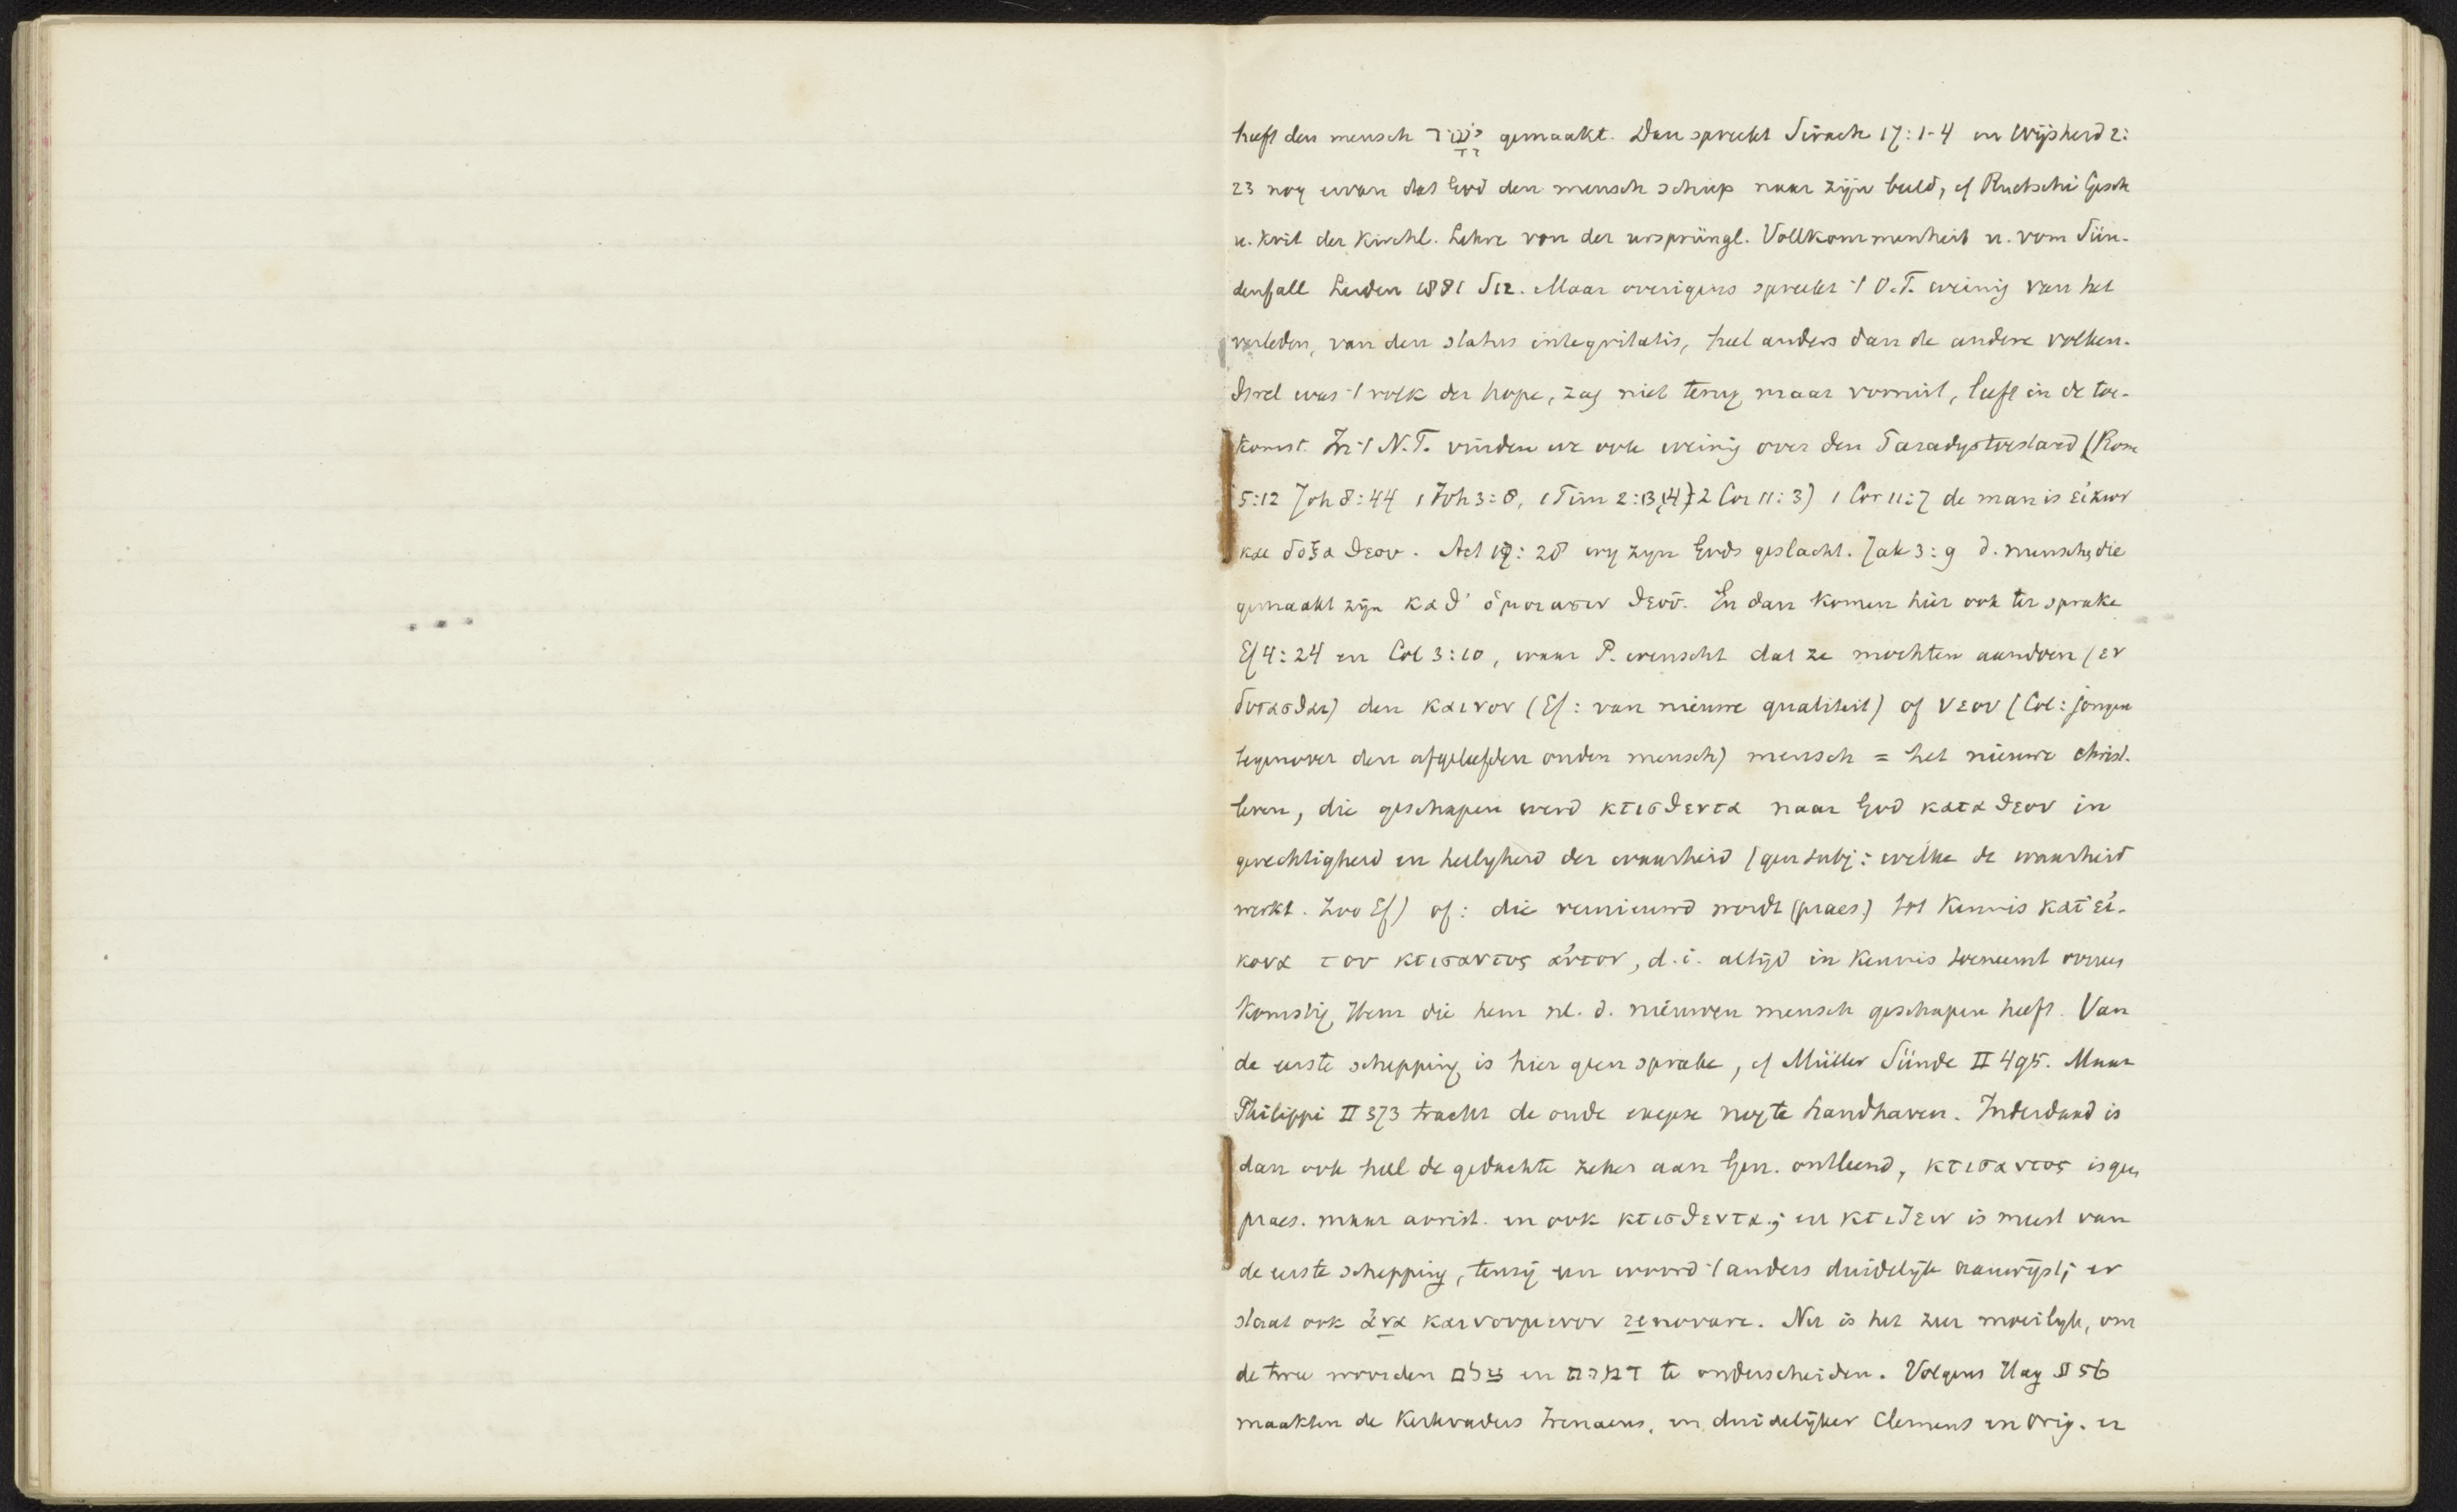 heeft den mensch יָשָׁר gemaakt. Dan spreekt Sirach 17:1-4 en Wijsheid 2:
23 nog ervan dat God den mensch schiep naar zijn beeld, cf Ruetschi Gesch
u. Krit der Kirchl. Lehre von der ursprüngl. Vollkommenheit u. vom Sün-
denfall Leiden 1881 S12. Maar overigens spreekt 't O.T. weinig van het
verleden, van den status integritatis, heel anders dan de andere volken.
Isrel was 't volk der hope, zag niet terug maar vooruit, leeft in de toe-
komst. In 't N.T. vinden we ook weinig over den Paradystoestand (Rom
5:12 Joh 8:44 1 Joh 3:8, 1 Tim 2:13,14, 2 Cor 11:3) 1 Cor 11:7 de man is εἰκων
και δοξα θεου. Act 17:28 wy zyn Gods geslacht. Jak 3:9 d. menschen die
gemaakt zijn καθ' ὁμοιωσιν θεοῦ. En dan komen hier ook ter sprake
Ef 4:24 en Col 3:10, waar P. wenscht dat ze mochten aandoen (εν
δυσασθαι) den καινον (Ef: van nieuwe qualiteit) of νεον (Col: jongen
tegenover den afgeleefden ouden mensch) mensch = het nieuwe christ.
leven, die geschapen werd κτισθεντα naar God κατα θεον in
gerechtigheid en heiligheid der waarheid (gen subj: welke de waarheid
werkt. Zoo Ef) of: die vernieuwd wordt (praes) tot kennis κατ' εἰ-
κονα του κτισαντος αὐτον, d.i. altijd in kennis toeneemt overeen
komstig Hem die hem nl. d. nieuwen mensch geschapen heeft. Van
de eerste schepping is hier geen sprake, cf Müller Sünde II 495. Maar
Philippi II 373 tracht de oude exegese nog te handhaven. Inderdaad is
dan ook heel de gedachte zeker aan Gen. ontleend, κτισαντος is geen
praes. maar aorist. en ook κτισθεντα; en κτιζειν is meest van
de eerste schepping, tenzij een woord 't anders duidelijk aanwijst; er
staat ook ἀνα καινουμενον renovare. Nu is het zeer moeilyk, om
de twee woorden צלם en דמות te onderscheiden. Volgens Hag § 56
maakten de Kerkvaders Irenaeus, en duidelijker Clemens en Orig. er